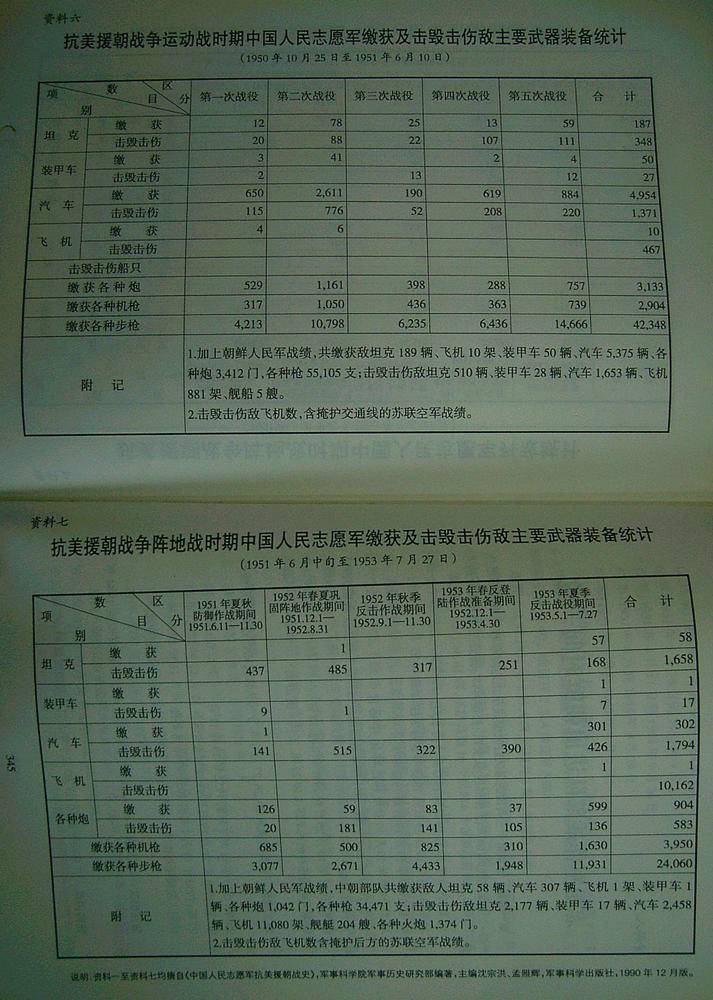 资料六
抗美援朝战争运动战时期中国人民志愿军缴获及击毁击伤敌主要武器装备统计
(1950 年 10 月 25 日至 1951 年 6 月 10 日)
项 数 区 第一次战役 第二次战役 第三次战役 第四次战役 第五次战役 合 计
别 目 分
坦 克 缴 获 12 78 25 13 59 187
击毁击伤 20 88 22 107 111 348
装甲车 缴 获 3 41 2 4 50
击毁击伤 2 13 12 27
汽 车 缴 获 650 2,611 190 619 884 4,954
击毁击伤 115 776 52 208 220 1,371
飞 机 缴 获 4 6 10
击毁击伤 467
击毁击伤船只
缴获各种炮 529 1,161 398 288 757 3,133
缴获各种机枪 317 1,050 436 363 739 2,904
缴获各种步枪 4,213 10,798 6,235 6,436 14,666 42,348
附 记
1.加上朝鲜人民军战绩,共缴获敌坦克 189 辆、飞机 10 架、装甲车 50 辆、汽车 5,375 辆、各
种炮 3,412 门,各种枪 55,105 支;击毁击伤敌坦克 510 辆、装甲车 28 辆、汽车 1,653 辆、飞机
881 架、舰船 5 艘。
2.击毁击伤敌飞机数,含掩护交通线的苏联空军战绩。
资料七
抗美援朝战争阵地战时期中国人民志愿军缴获及击毁击伤敌主要武器装备统计
(1951 年 6 月中旬至 1953 年 7 月 27 日)
项 数 区
别 目 分
1951 年夏秋
防御作战期间
1951.6.11—11.30
1952 年春夏巩
固阵地作战期间
1951.12.1—
1952.8.31
1952 年秋季
反击作战期间
1952.9.1—11.30
1953 年春反登
陆作战准备期间
1952.12.1—
1953.4.30
1953 年夏季
反击战役期间
1953.5.1—7.27
合 计
坦 克 缴 获 1 57 58
击毁击伤 437 485 317 251 168 1,658
装甲车 缴 获 1 1
击毁击伤 9 1 7 17
汽 车 缴 获 1 301 302
击毁击伤 141 515 322 390 426 1,794
飞 机 缴 获 1 1
击毁击伤 10,162
各种炮 缴 获 126 59 83 37 599 904
击毁击伤 20 181 141 105 136 583
缴获各种机枪 685 500 825 310 1,630 3,950
缴获各种步枪 3,077 2,671 4,433 1,948 11,931 24,060
附 记
1.加上朝鲜人民军战绩,中朝部队共缴获敌人坦克 58 辆、汽车 307 辆、飞机 1 架、装甲车 1
辆、各种炮 1,042 门,各种枪 34,471 支;击毁击伤敌坦克 2,177 辆、装甲车 17 辆、汽车 2,458
辆、飞机 11,080 架、舰艇 204 艘、各种火炮 1,374 门。
2.击毁击伤敌飞机数含掩护后方的苏联空军战绩。
345
说明:资料一至资料七均摘自《中国人民志愿军抗美援朝战史》,军事科学院军事历史研究部编著,主编沈宗洪、孟照辉,军事科学出版社,1990 年 12 月版。